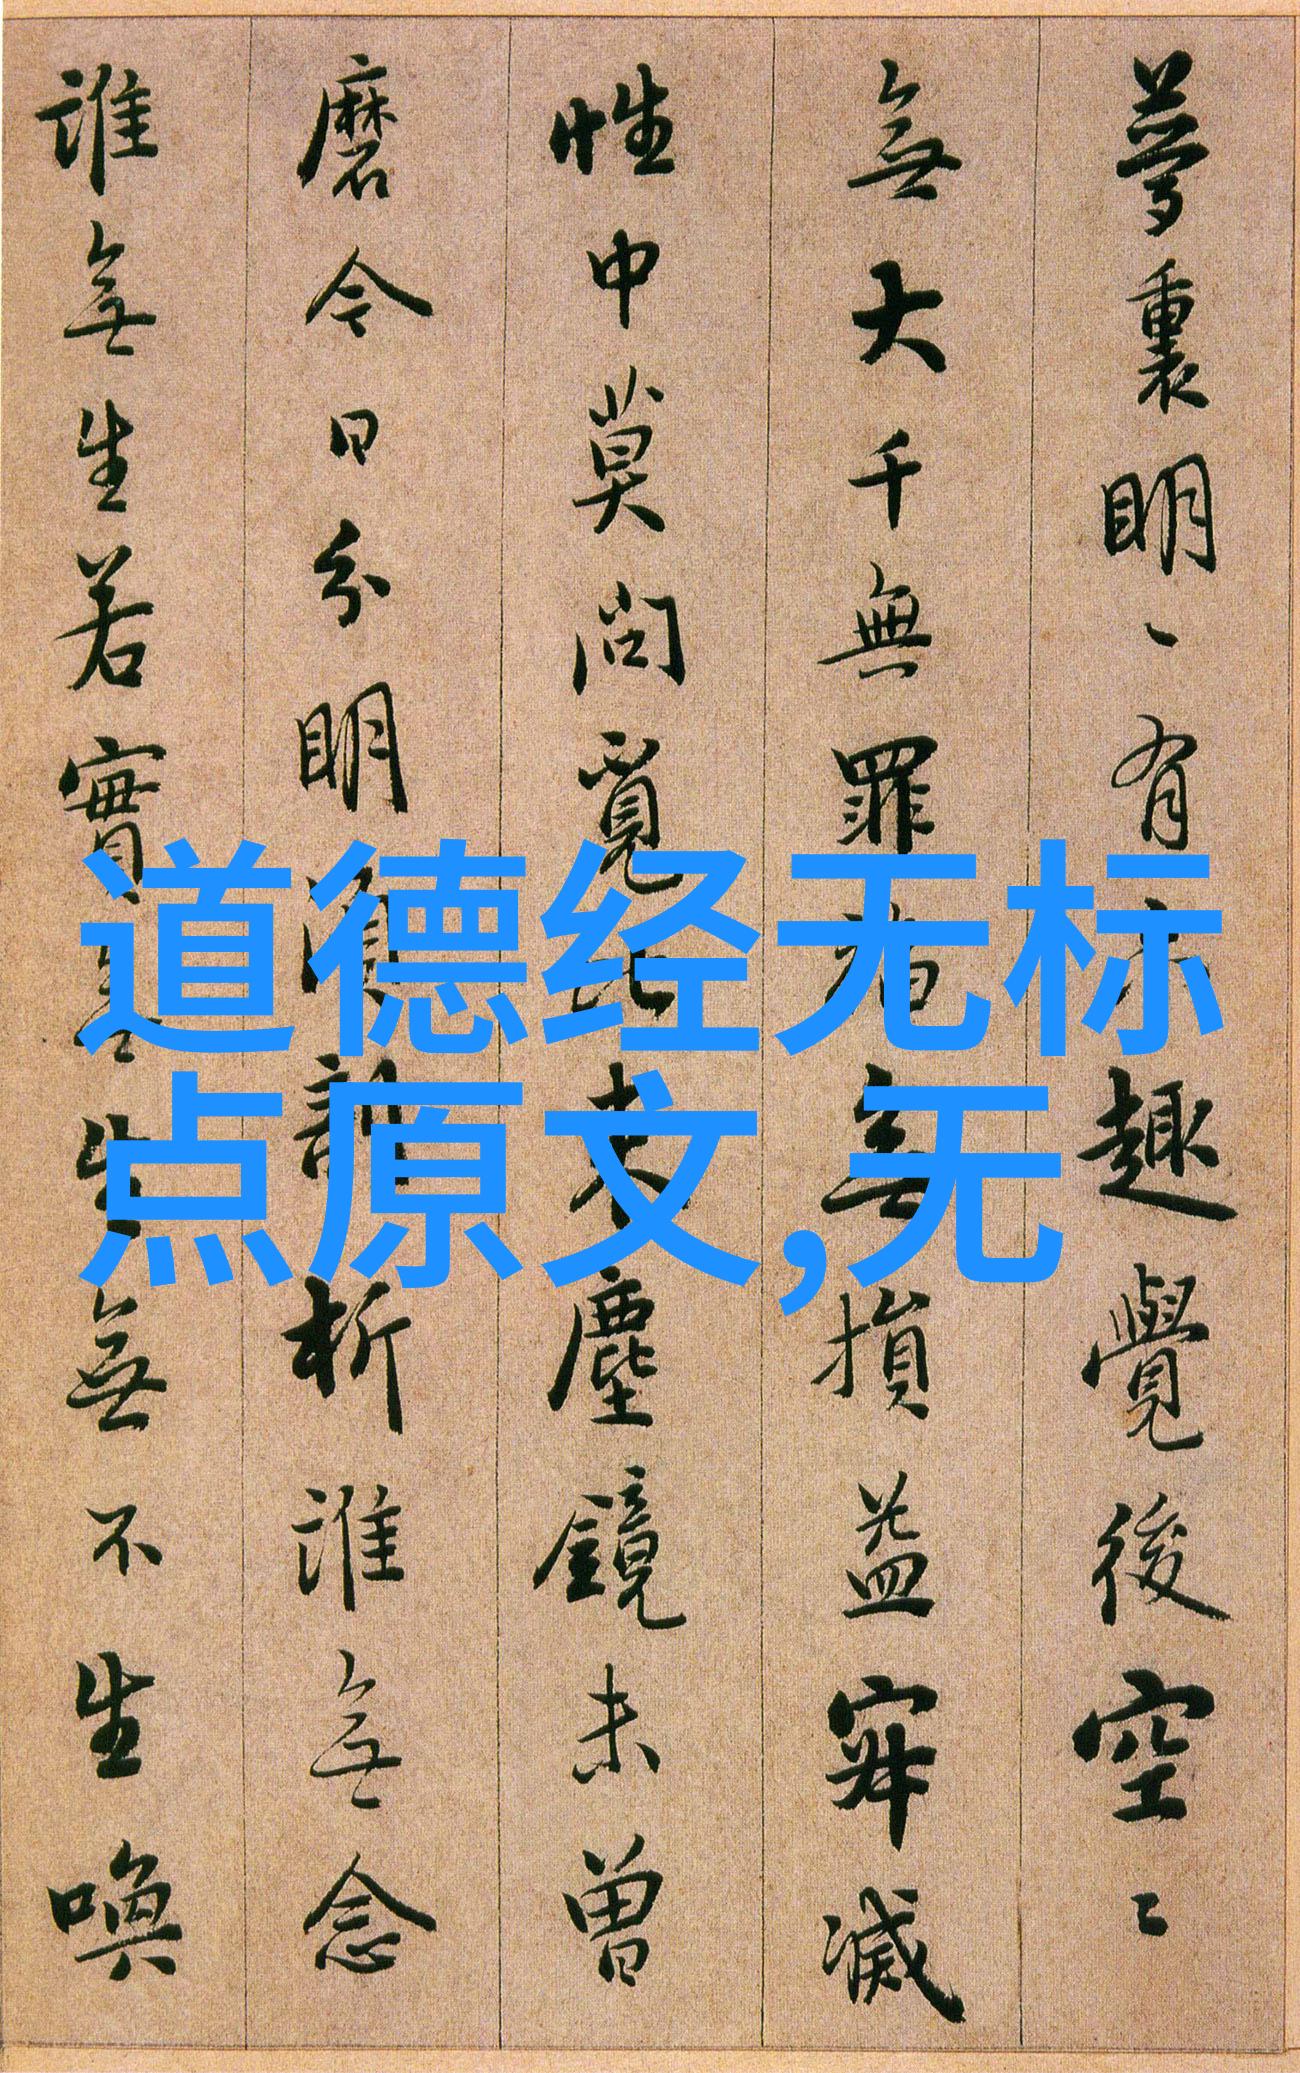 夢裏明々有六趣覺後空々
無大千無罪福無損益寂滅
性中莫問覓比来塵鏡未曾
磨今日分明須剖析誰無念
誰無生若實無生無不生喚
道德经无标
点原文,无